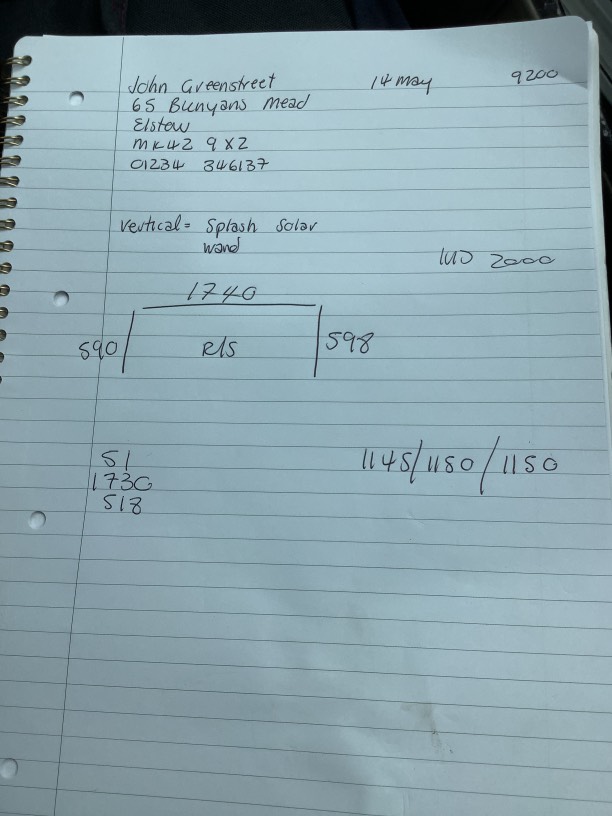 John Greenstreet 14 May 9200
65 Bunyans Mead
Elstow
MK42 9X2
01234 346137
Vertical = Splash Solar
wand
2000
1740
590 R/S 598
51
1730
518
1145/1150/1150